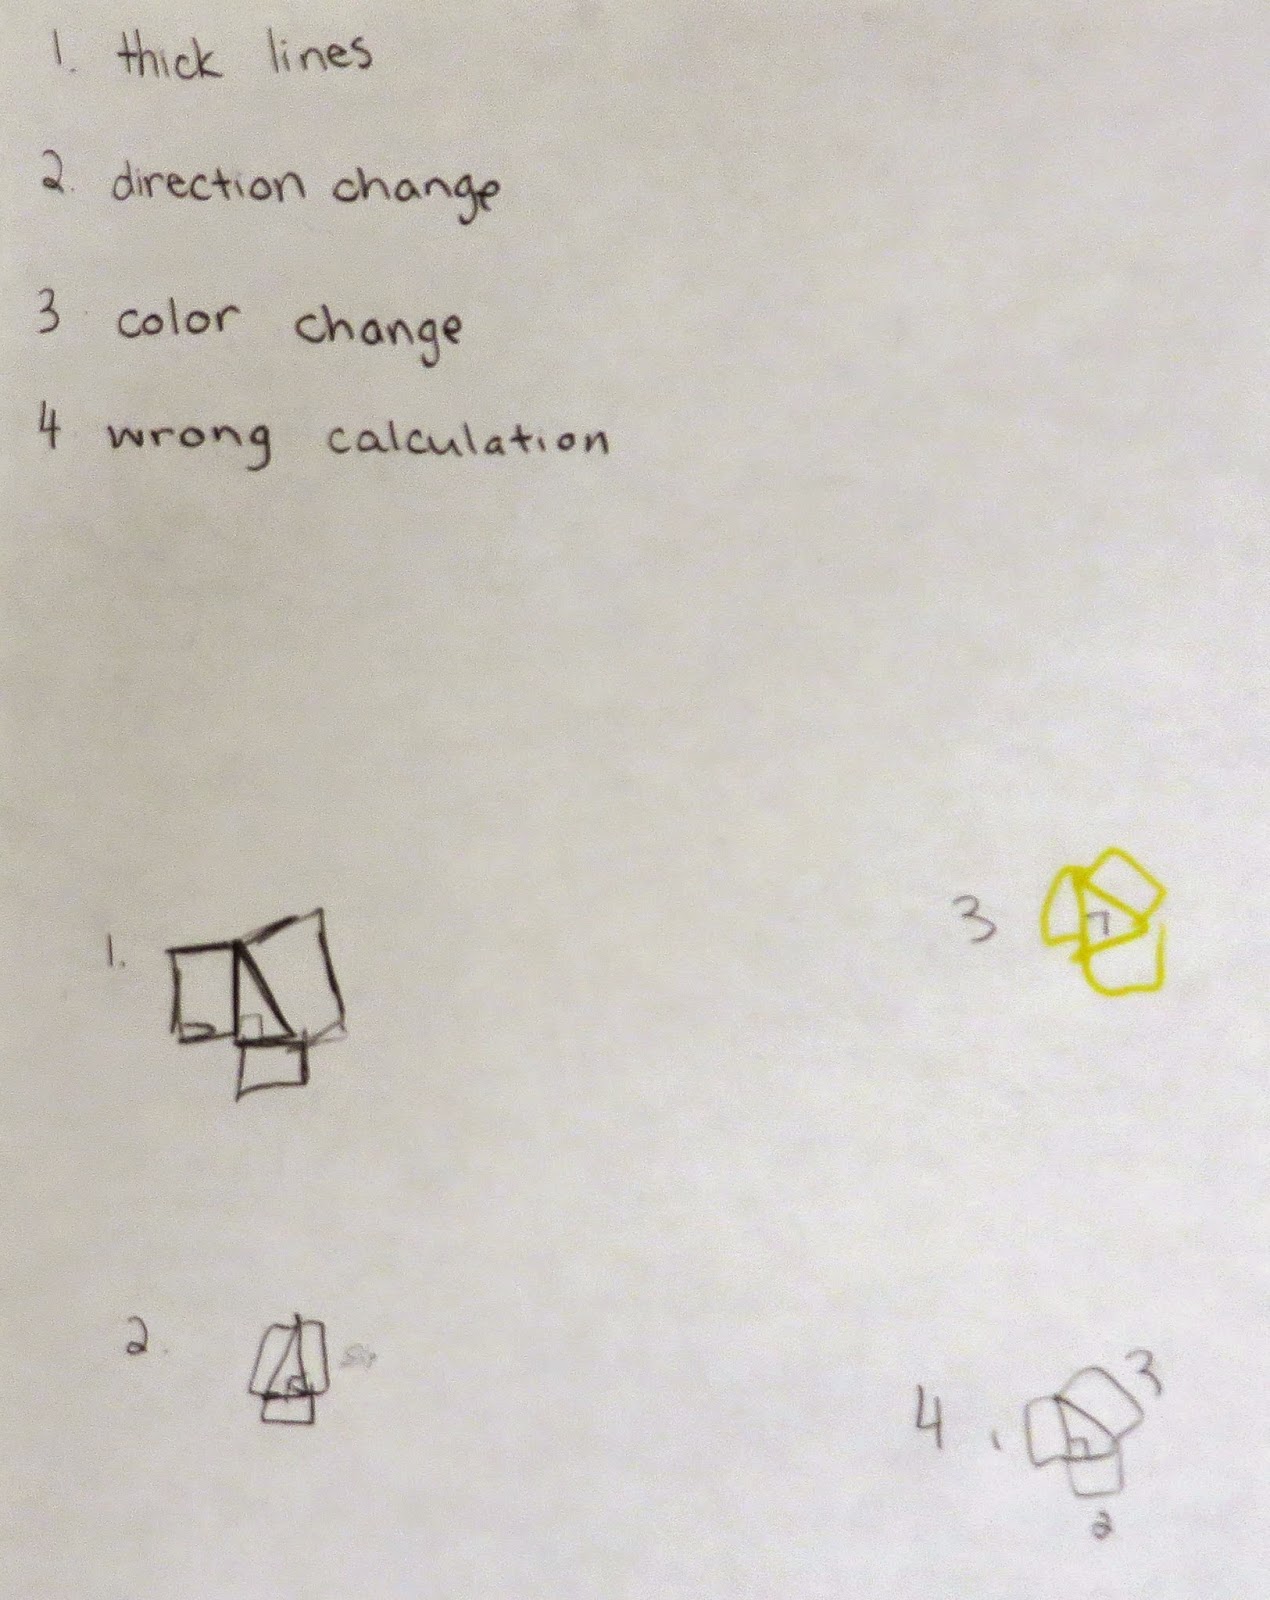 1. thick lines
2. direction change
3 color change
4 wrong calculation
3
1.
2.
3
4 1
2